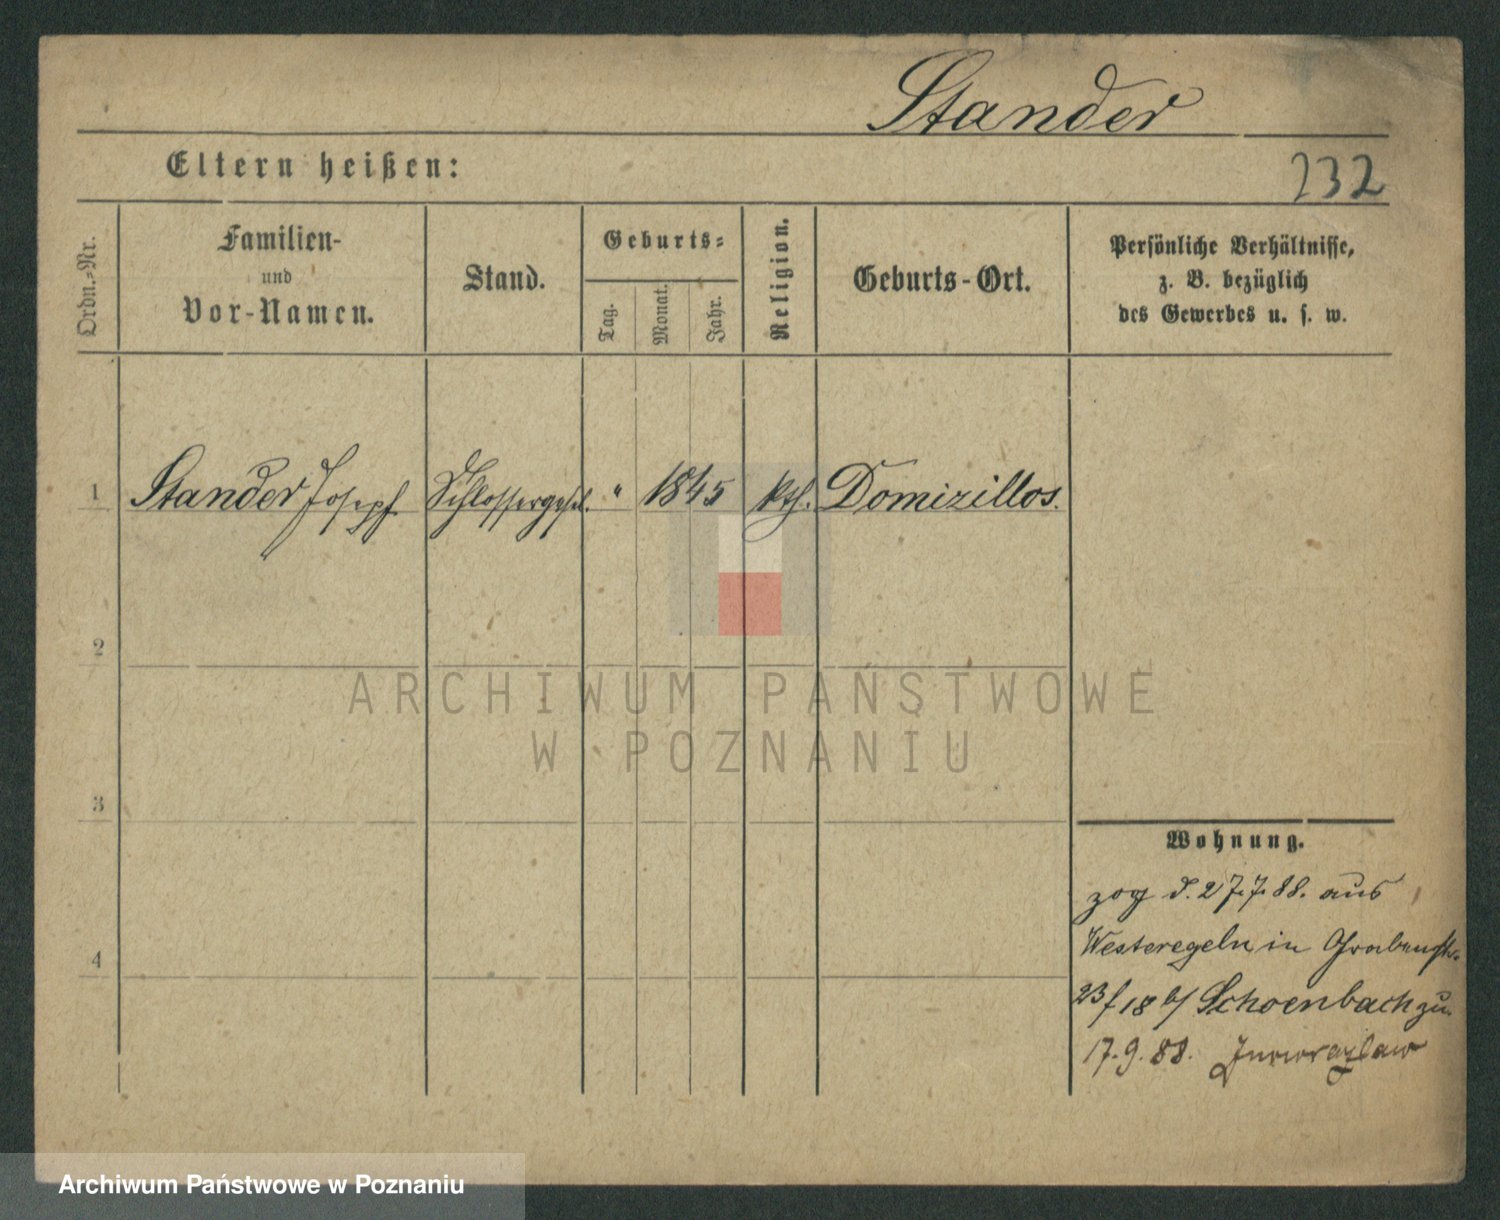 Stander
Eltern heißen:
232
Ordn.-Nr.
Familien-
und
Vor-Namen.
Stand.
Geburts-
Tag.
Monat.
Jahr.
Religion.
Geburts-Ort.
Persönliche Verhältnisse,
z. B. bezüglich
des Gewerbes u. s. w.
1 Stander Joseph Schlossergesel. " 1845 kth. Domizillos.
2
ARCHIWUM PAŃSTWOWE
W POZNANIU
3
Wohnung.
zog d. 27.7.88. aus
4
Westeregeln in Grabenstr.
23/18 b/ Schoenbach zu.
17.9.88. Inowrazlaw
Archiwum Państwowe w Poznaniu